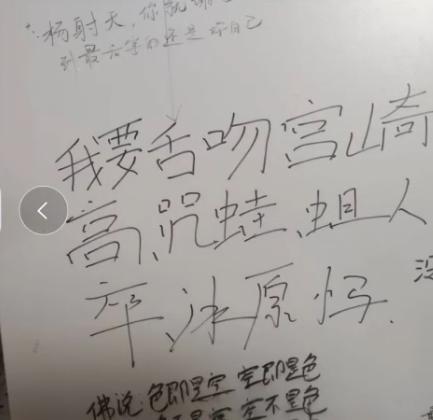 杨射天，你就
到最后
还是
自己
我要舌吻宫崎
高、咒蛙、蛆人
卒、冰原妈.
没
佛说：色即是空 空即是色
空不是色